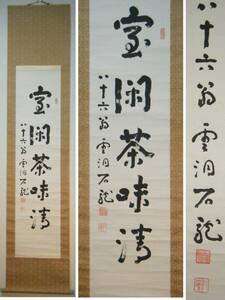 室閑茶味清
八十六翁 雲 石龍
室閑茶味清
八十六翁 雲 石龍
八十六翁 雲 石龍